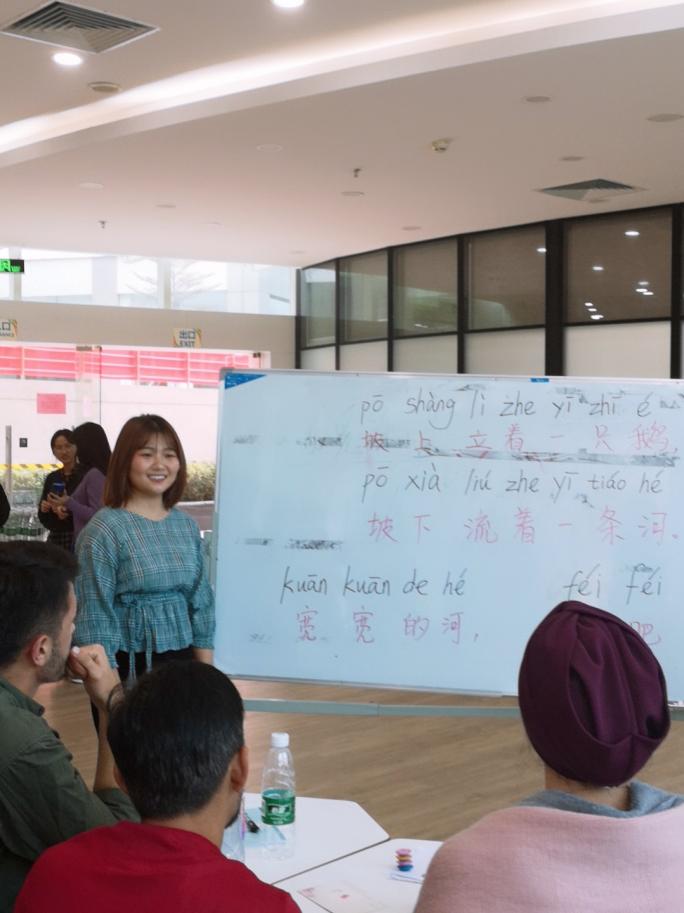 出口
EXIT
pō shàng lì zhe yī zhī é
坡上立着一只鹅,
pō xià liú zhe yī tiáo hé
坡下流着一条河。
kuān kuān de hé féi féi
宽宽的河,